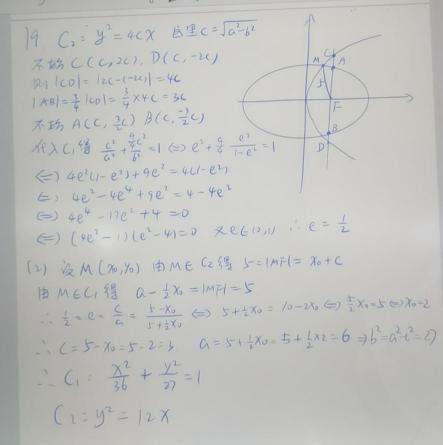 19. C₂: y²=4cx 这里 c=√(a²-b²)
不妨 C(c,2c), D(c,-2c)
则|CD|=|2c-(-2c)|=4c
|AB|=¾|CD|=¾×4c=3c
不妨 A(c,3/2c) B(c,-3/2c)
代入C₁得 c²/a²+(9/4c²)/b²=1 ⇔ e²+9/4 e²/(1-e²)=1
⇔ 4e²(1-e²)+9e²=4(1-e²)
⇔ 4e²-4e⁴+9e²=4-4e²
⇔ 4e⁴-17e²+4=0
⇔ (4e²-1)(e²-4)=0 又e∈(0,1) ∴e=1/2
M C A
5
F
B
D
(2) 设M(x₀,y₀) 由M∈C₂得 5=|MF|=x₀+c
由M∈C₁得 a-½x₀=|MF|=5
∴ ½=e=c/a=(5-x₀)/(5+½x₀) ⇔ 5+½x₀=10-2x₀ ⇔ 5/2x₀=5 ⇔ x₀=2
∴ c=5-x₀=5-2=3 a=5+½x₀=5+½×2=6 ⇒b²=a²-c²=27
∴ C₁: x²/36+y²/27=1
C₂: y²=12x